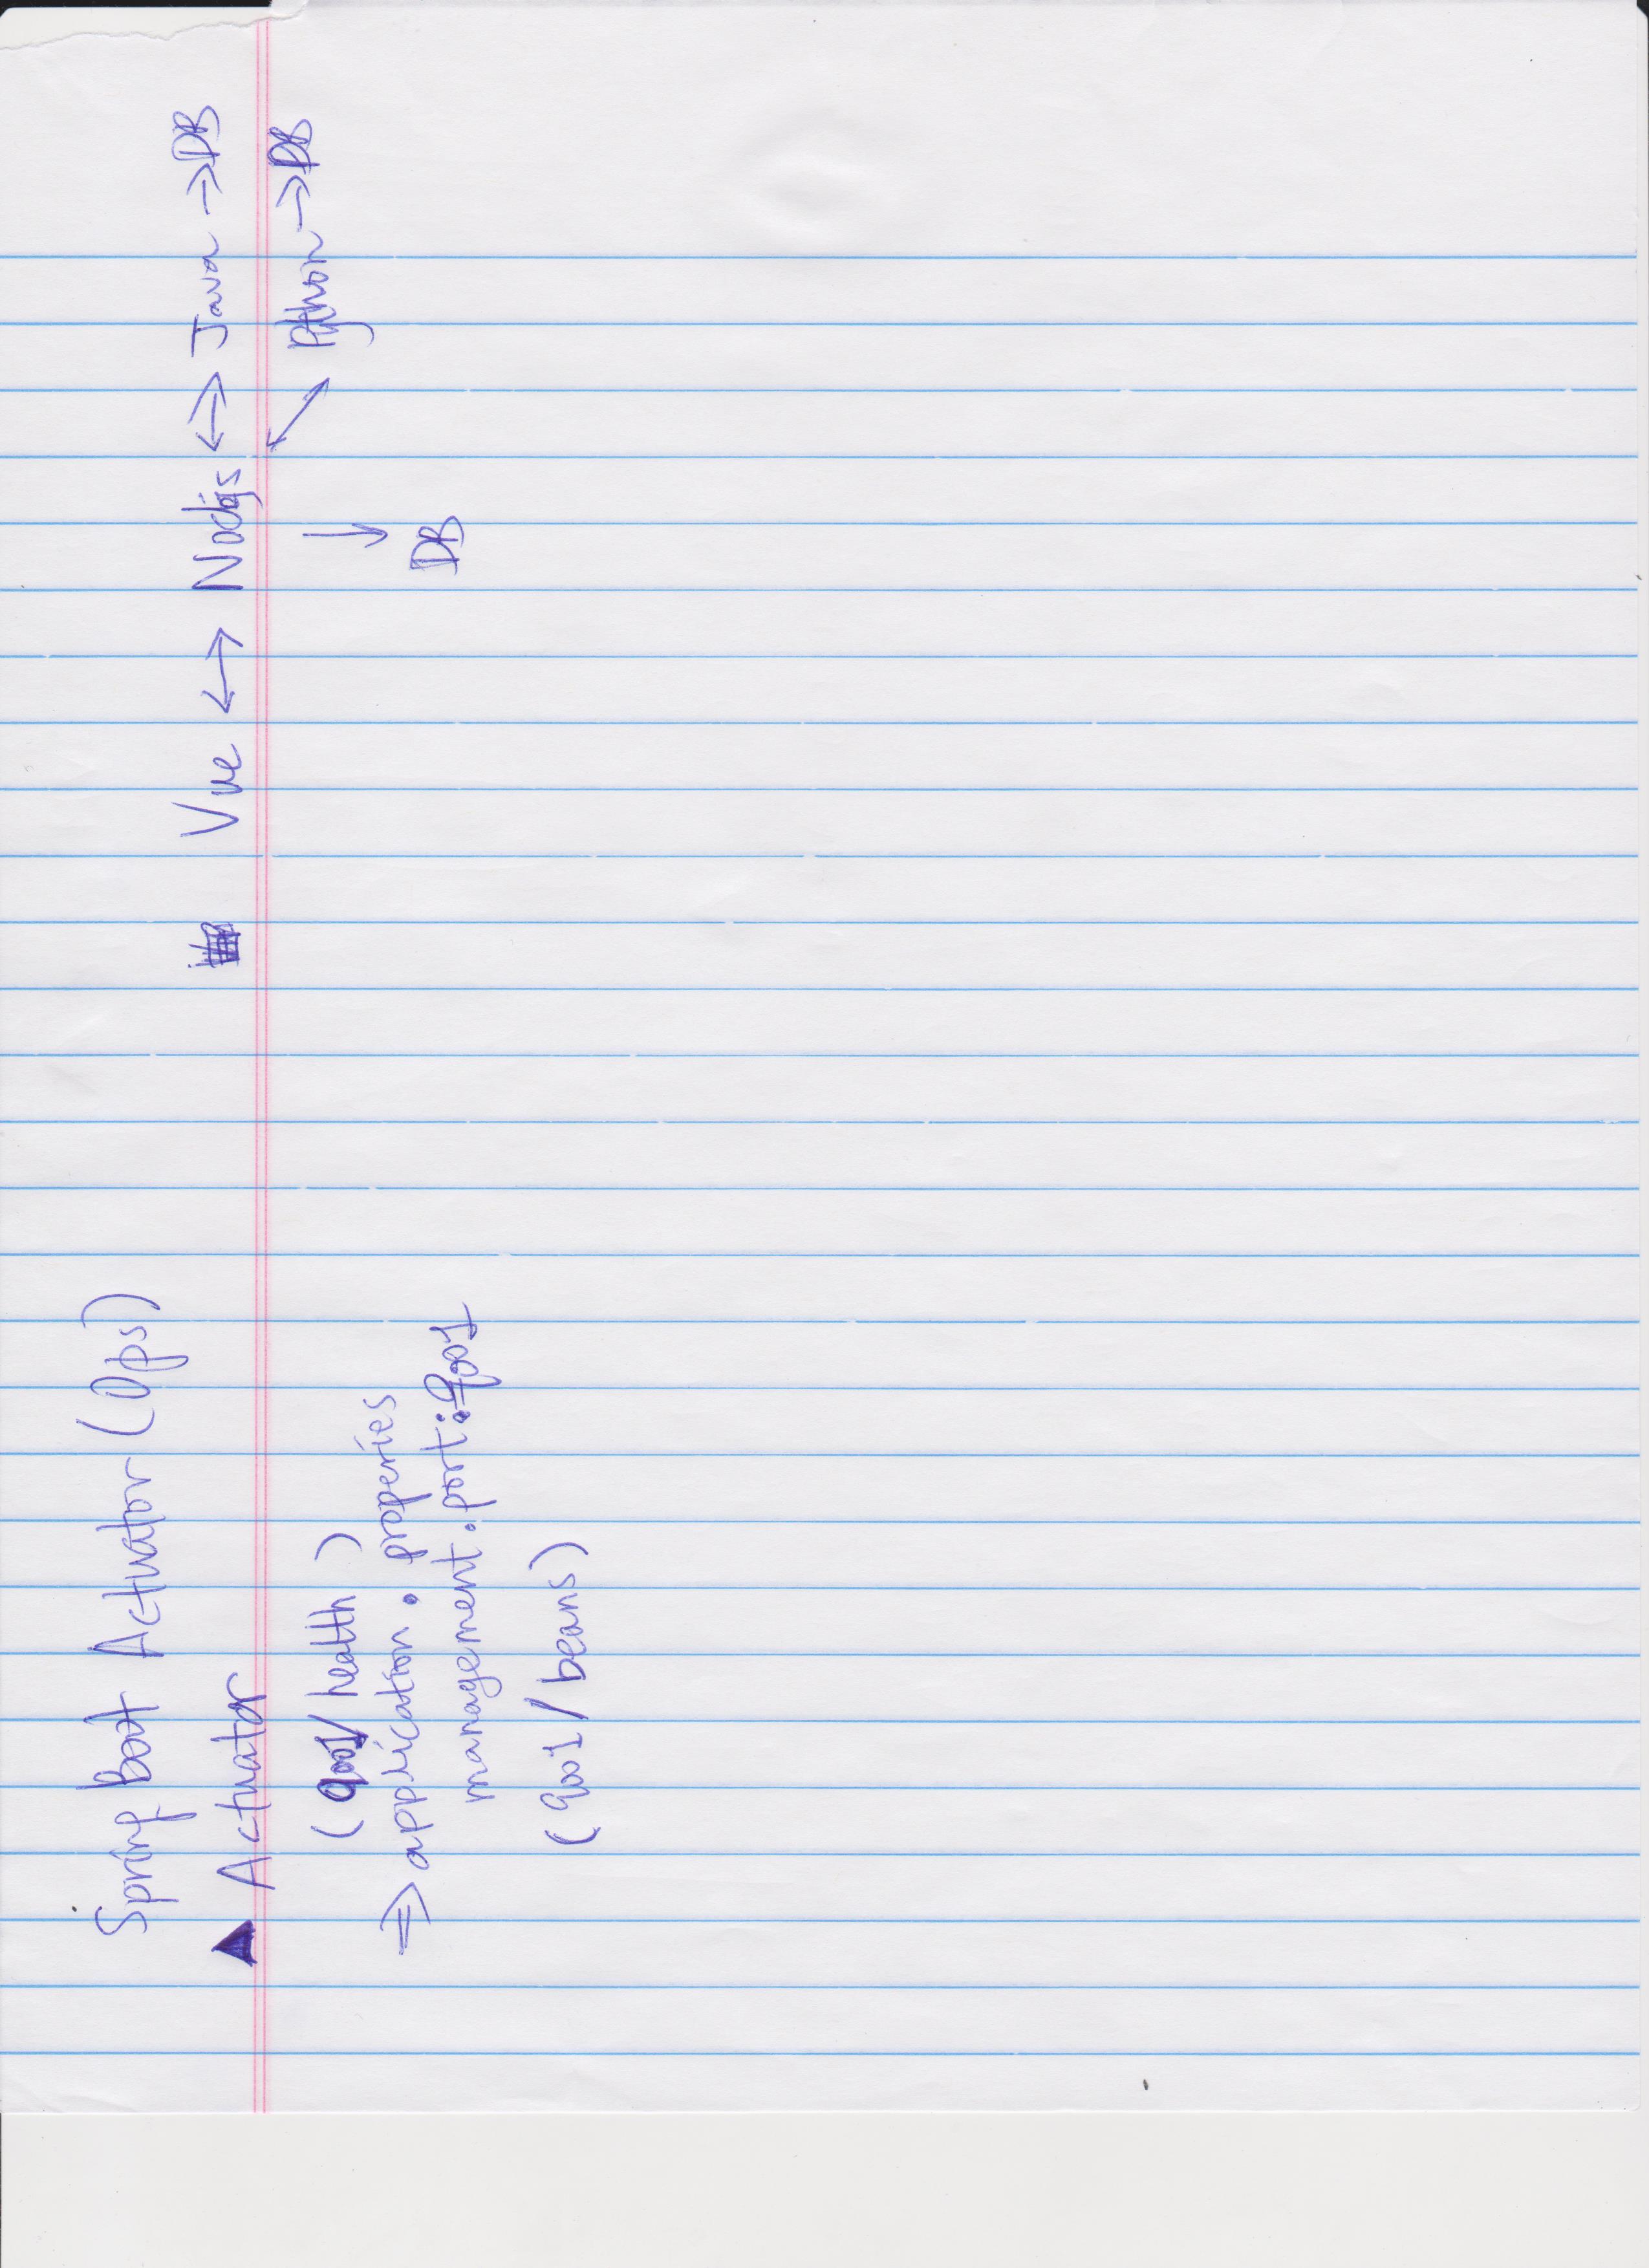 Spring Boot Actuator (Ops)
▲ Actuator
(9001/health)
⇒ application.properies
management.port:9001
(9001/beans)
Vue ↔ Nodejs ↔ Java → DB
Python → DB
DB